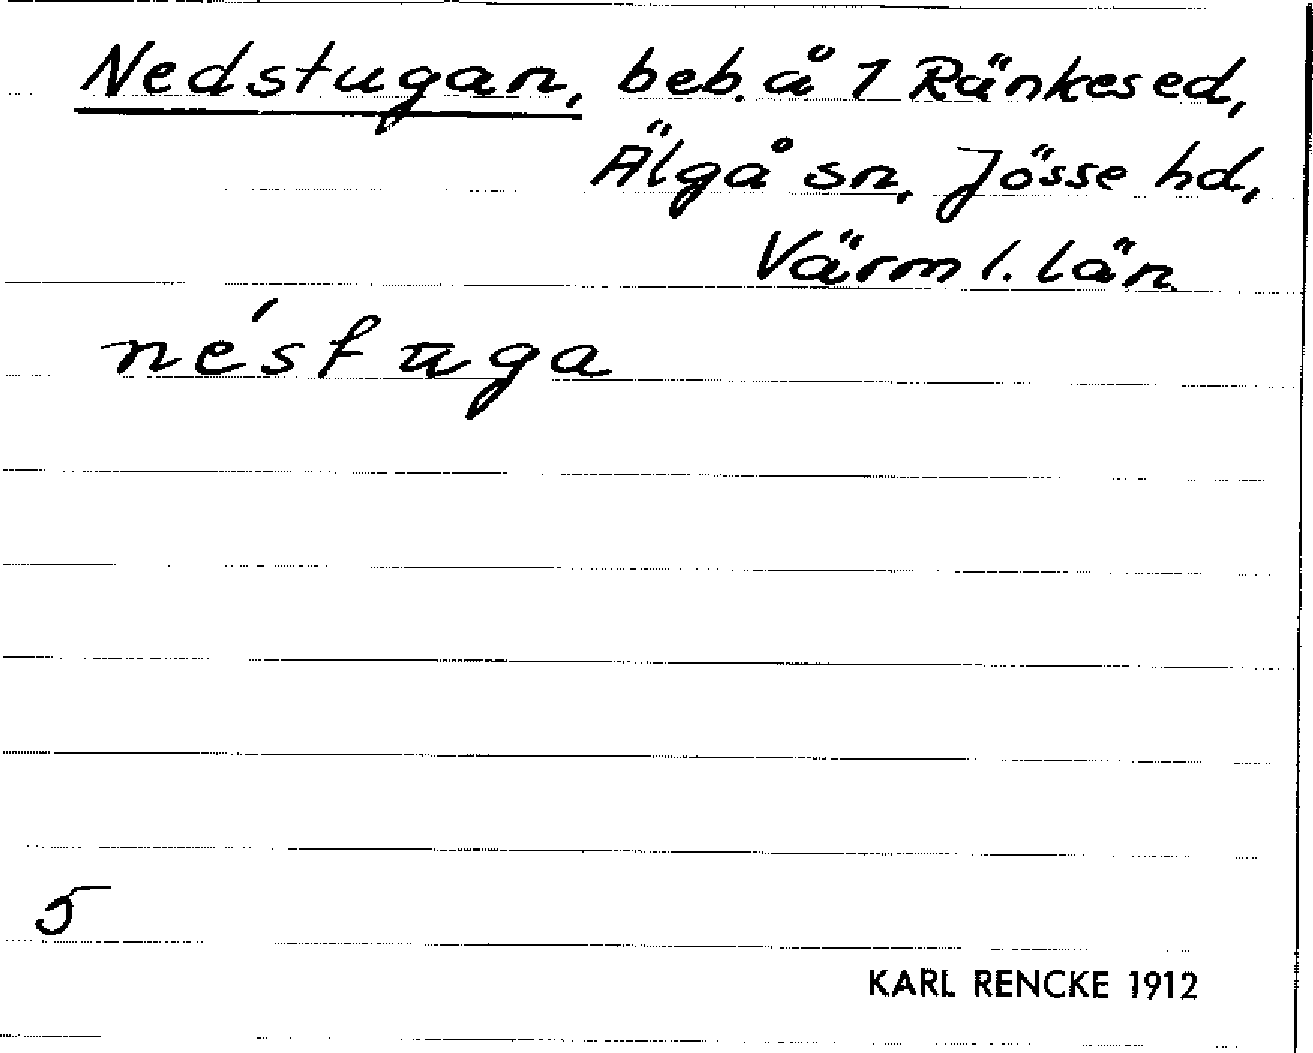 Nedstugan, beb. å 1 Ränkesed,
Älgå sn, Jösse hd,
Värml. län.
nés𝑡uga
5
KARL RENCKE 1912